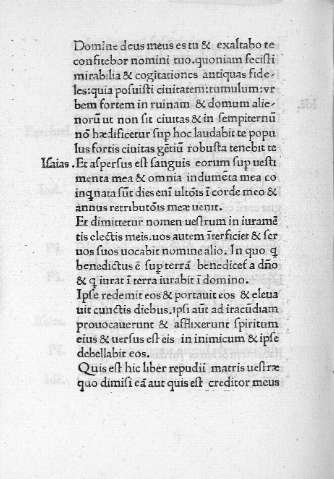 Domine deus meus es tu & exaltabo te
confitebor nomini tuo. quoniam fecisti
mirabilia & cogitationes antiquas fide-
les: quia posuisti ciuitatem: tumulum: vr
bem fortem in ruinam & domum alie-
norũ ut non sit ciuitas & in sempiternũ
nõ hædificetur sup hoc laudabit te popu
lus fortis ciuitas gẽtiũ robusta tenebit te
Isaias. Et aspersus est sanguis eorum sup uesti
menta mea & omnia indumẽta mea co
inqnata sũt dies em̃ ultõis ĩ corde meo &
annus retributõis meæ uenit.
Et dimittetur nomen uestrum in iuramẽ
tis electis meis. uos autem ĩterficiet & ser
uos suos uocabit nomine alio. In quo q
benedictus ẽ sup terrã benedicet a dño
& q iurat ĩ terra iurabit ĩ domino.
Ipse redemit eos & portauit eos & eleua
uit cunctis diebus. ipsi aũt ad iracũdiam
prouocauerunt & afflixerunt spiritum
eius & uersus est eis in inimicum & ipse
debellabit eos.
Quis est hic liber repudii matris uestræ
quo dimisi eã aut quis est creditor meus